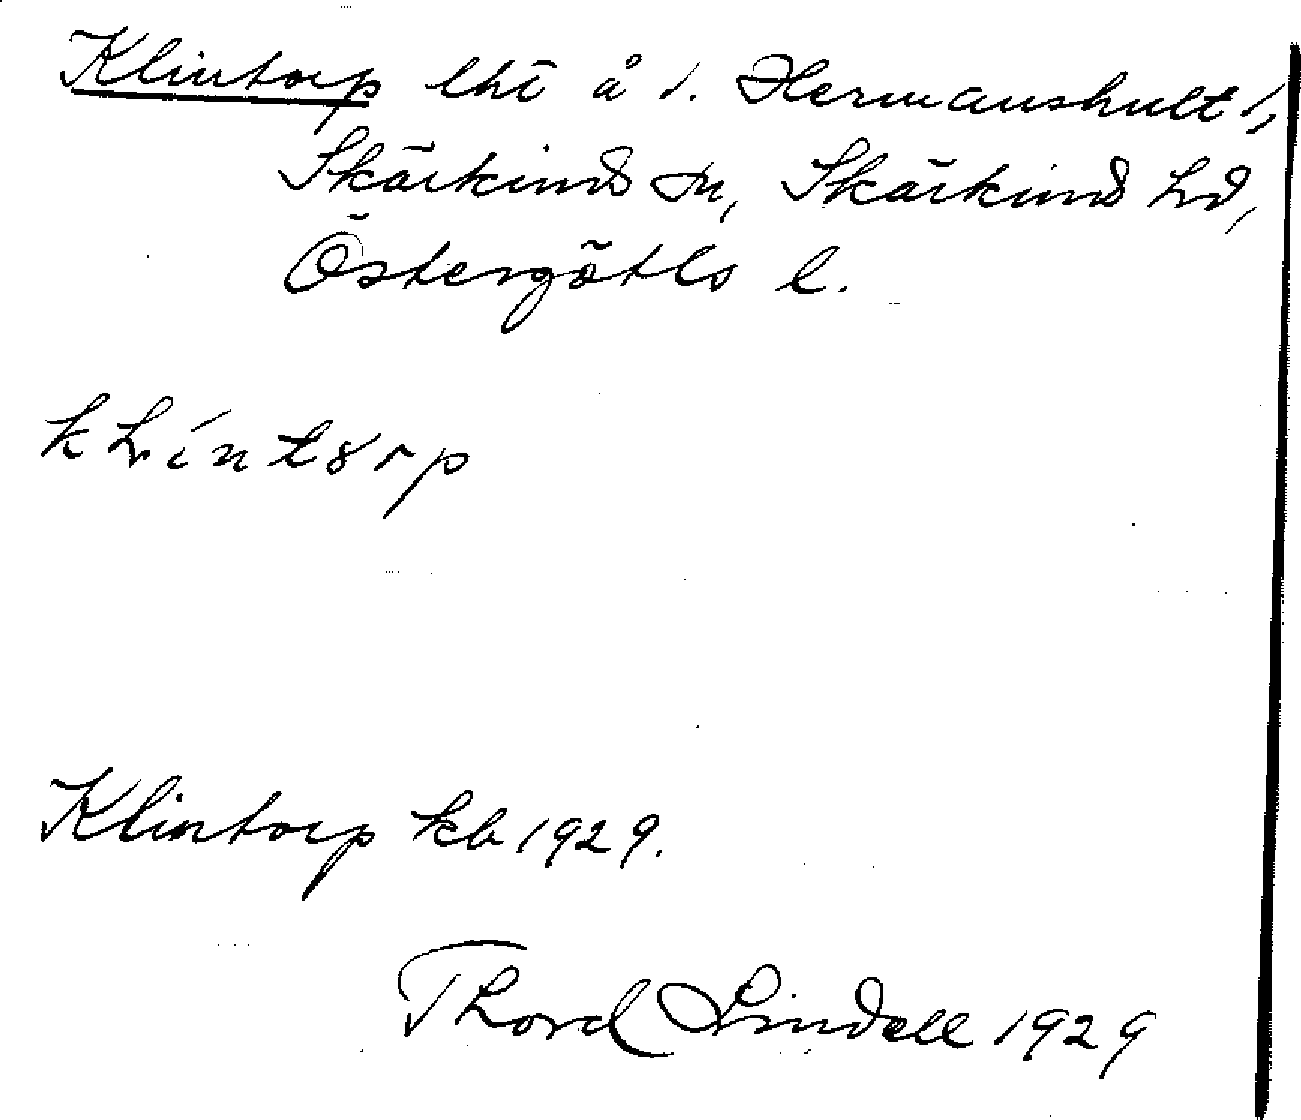 Klintorp lht å 1. Hermanshult 1,
Skärkinds sn, Skärkinds hd,
Östergötls l.
Klintorp kb 1929.
Thord Lindell 1929